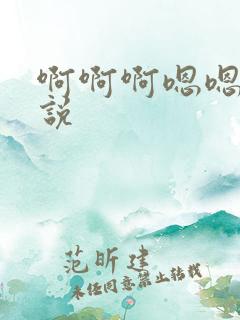 啊啊啊嗯嗯
説
范昕建
未经同意禁止转载